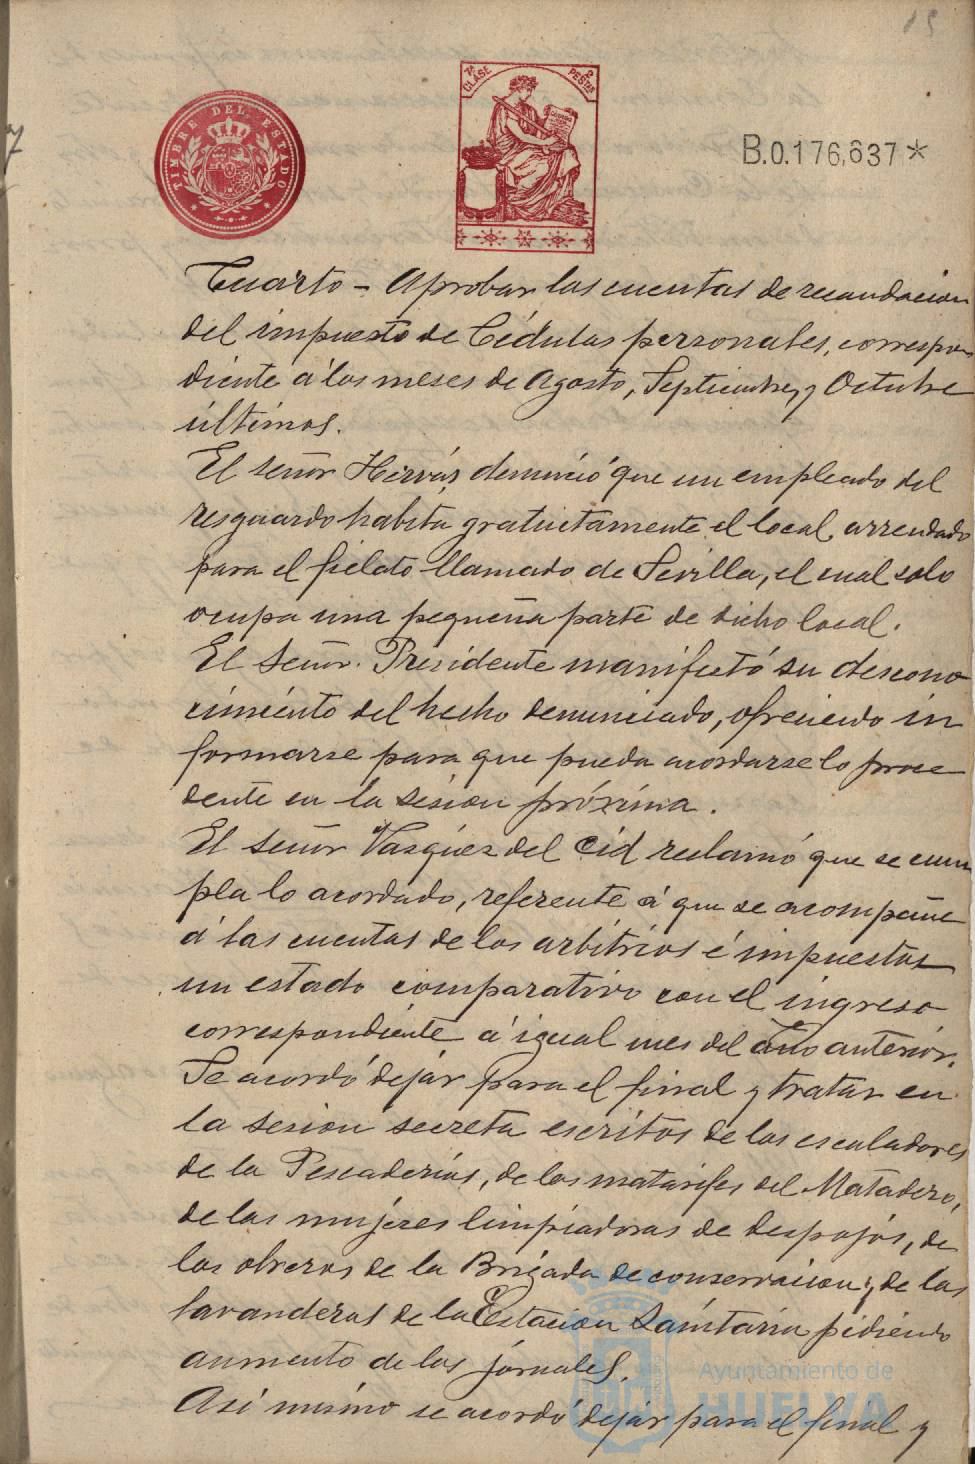 15
TIMBRE DEL ESTADO
7ª CLASE 2 PESETAS
B.0.176,637*
Cuarto - Aprobar las cuentas de recaudacion
del impuesto de Cédulas personales, correspon
diente á los meses de Agosto, Septiembre y Octubre
últimos.
El señor Hervás denunció que un empleado del
resguardo habita gratuitamente el local arrendado
para el fielato llamado de Sevilla, el cual solo
ocupa una pequeña parte de dicho local.
El Señor Presidente manifestó su descono
cimiento del hecho denunciado, ofreciendo in
formarse para que pueda acordarse lo proce
dente en la sesion próxima.
El Señor Vazquez del Cid reclamó que se cum
pla lo acordado, referente á que se acompañe
á las cuentas de los arbitrios é impuestos
un estado comparativo con el ingreso
correspondiente á igual mes del año anterior.
Se acordó dejar para el final y tratar en
la sesion secreta escritos de los escaladores
de la Pescaderías, de los matarifes del Matadero,
de las mujeres limpiadoras de despojos, de
los obreros de la Brigada de conservacion y de las
lavanderas de la Estacion Sanitaria pidiendo
aumento de los jornales.
Asi mismo se acordó dejar para el final y
Ayuntamiento de
HUELVA